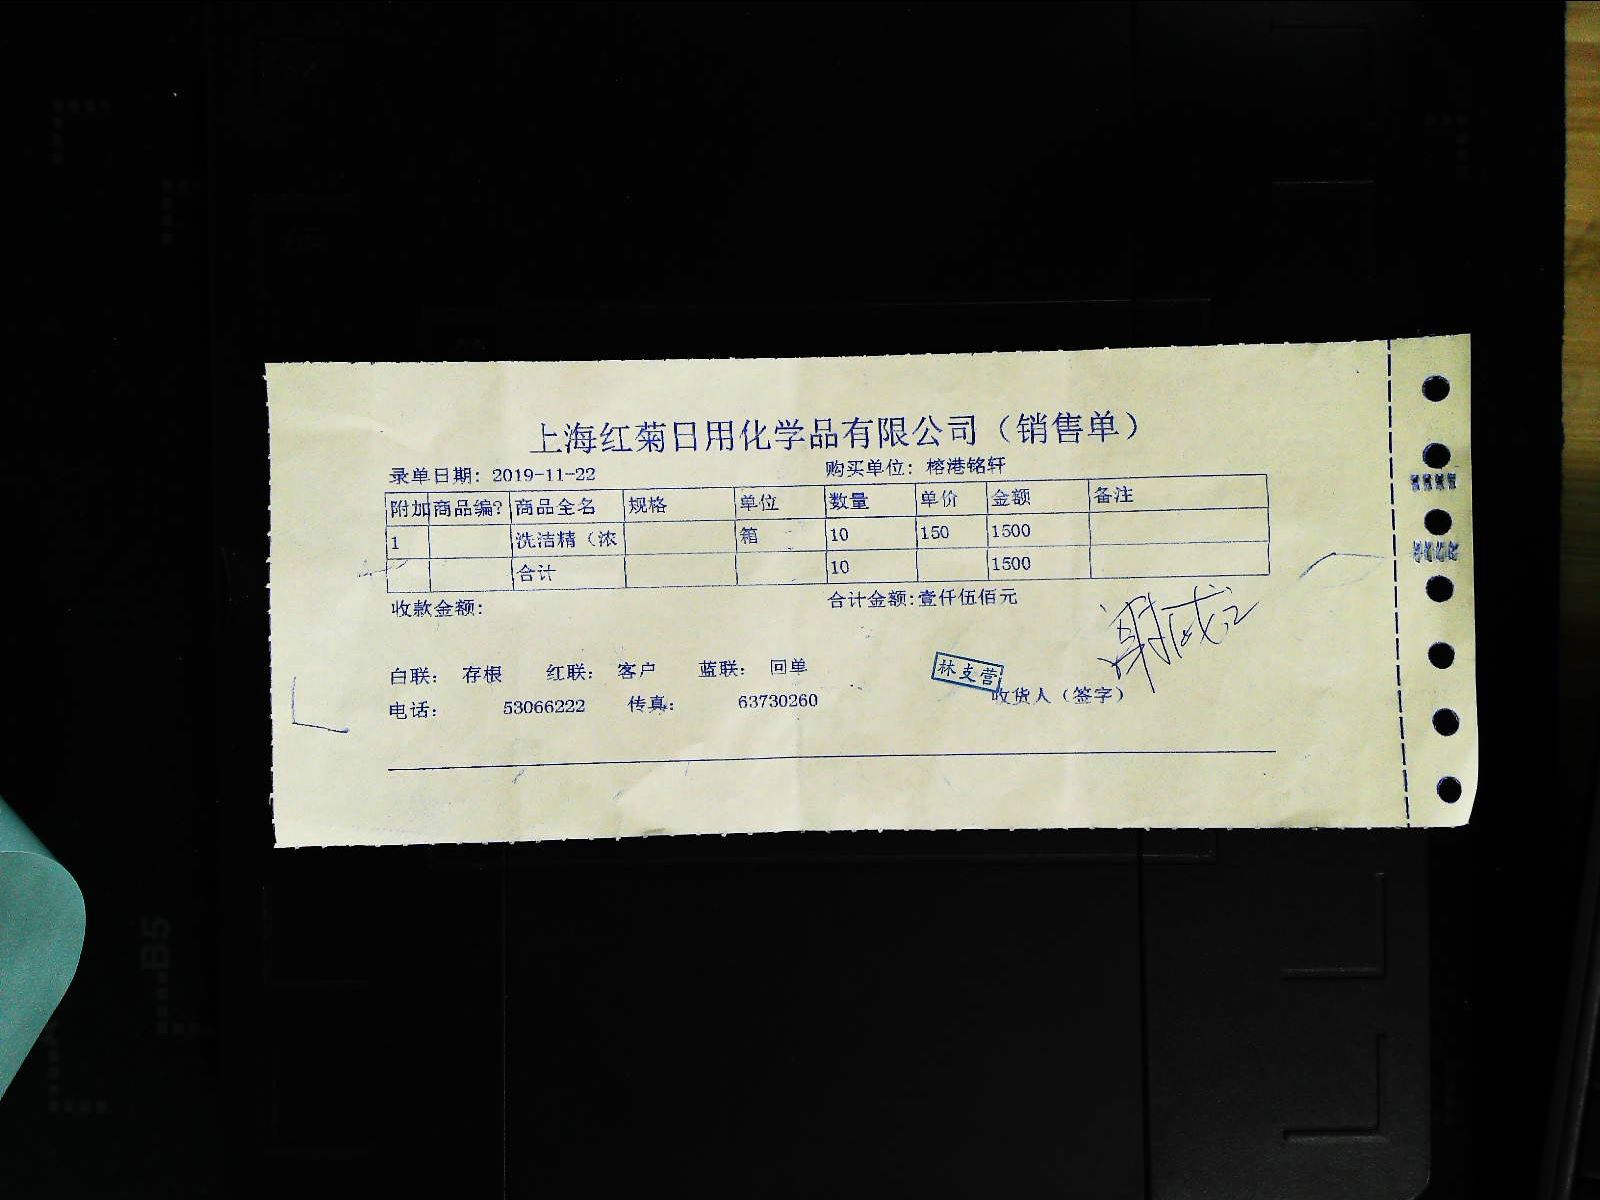 上海红菊日用化学品有限公司（销售单）
录单日期: 2019-11-22 购买单位: 榕港铭轩
附加 商品编? 商品全名 规格 单位 数量 单价 金额 备注
1 洗洁精（浓 箱 10 150 1500
合计 10 1500
收款金额: 合计金额:壹仟伍佰元
白联: 存根 红联: 客户 蓝联: 回单
林支营
电话: 53066222 传真: 63730260 收货人（签字）
B5